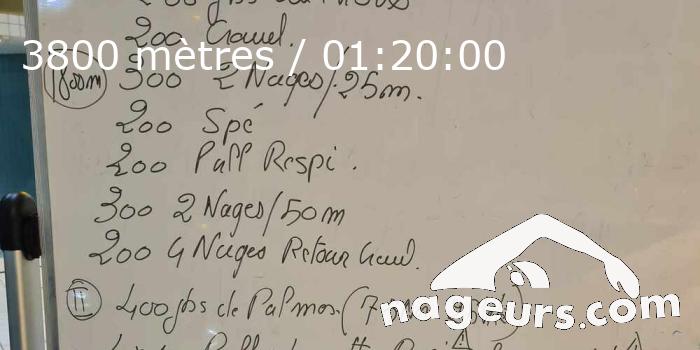 200 Crawl.
3800 mètres / 01:20:00
1800m 300 2 Nages/25m.
200 Spé
200 Pull Respi.
300 2 Nages/50m
200 4 Nages Retour Crawl.
II 400 jbs de Palmes (7
nageurs.com